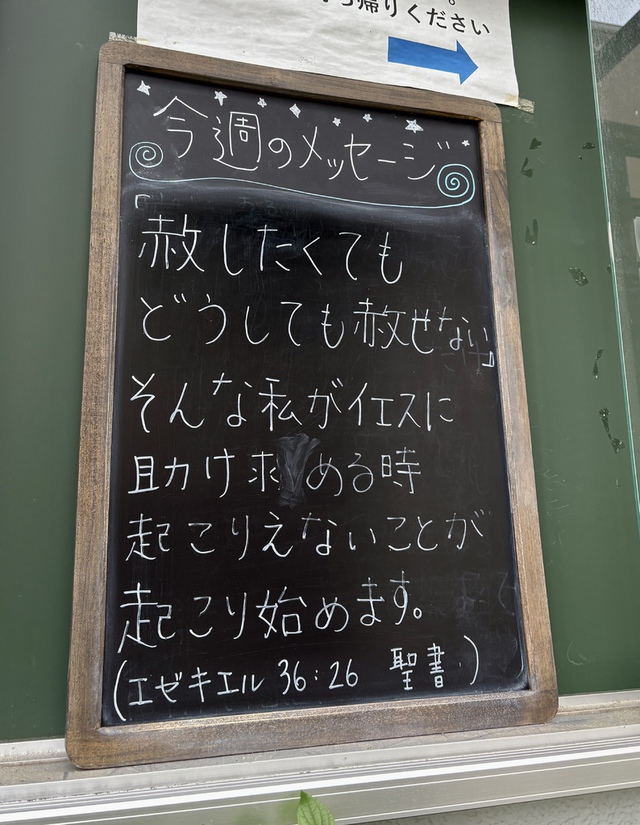 。
ち帰りください
今週のメッセージ
「赦したくても
どうしても赦せない」
そんな私がイエスに
助け求める時
起こりえないことが
起こり始めます。
(エゼキエル 36:26 聖書)